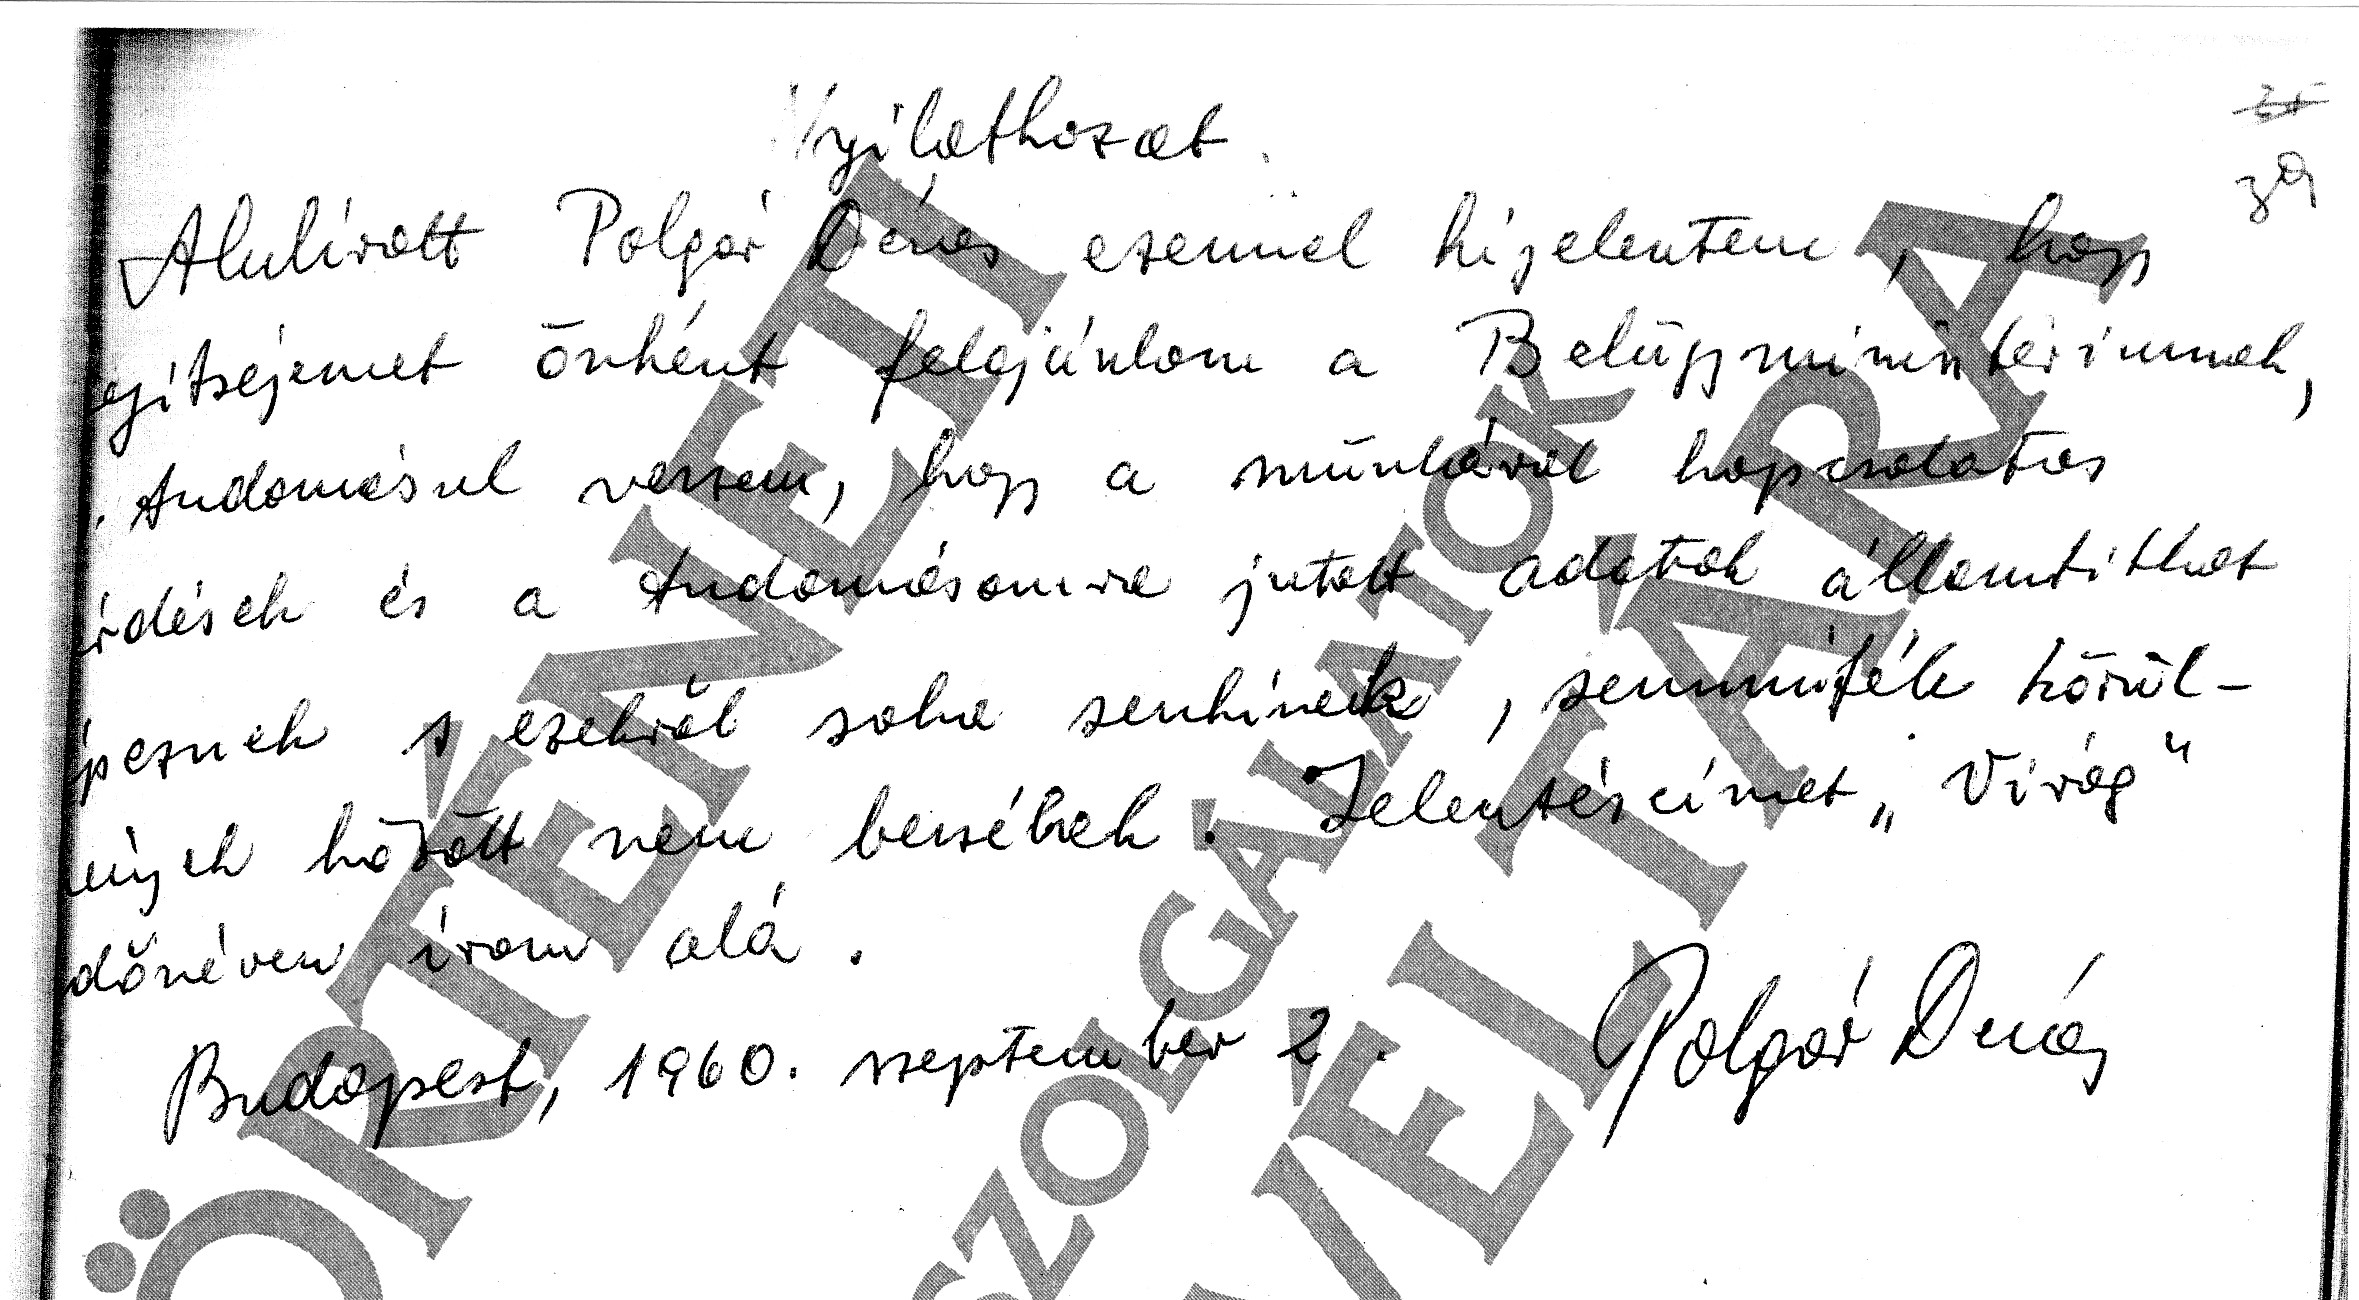 Nyilatkozat.
25
39
Alulírott Polgár Dénes ezennel kijelentem, hogy
egítségemet önként felajánlom a Belügyminisztériumnak,
. tudomásul veszem, hogy a munkával kapcsolatos
érdések és a tudomásomra jutott adatok államtitkot
épeznek s ezekről soha senkinek, semmiféle körül-
ények között nem beszélek. Jelentéseimet „Virág"
dőnéven írom alá.
Budapest, 1960. szeptember 2. Polgár Dénes
TÖRTÉNETI
SZOLGÁLATOK
LEVÉLTÁRA